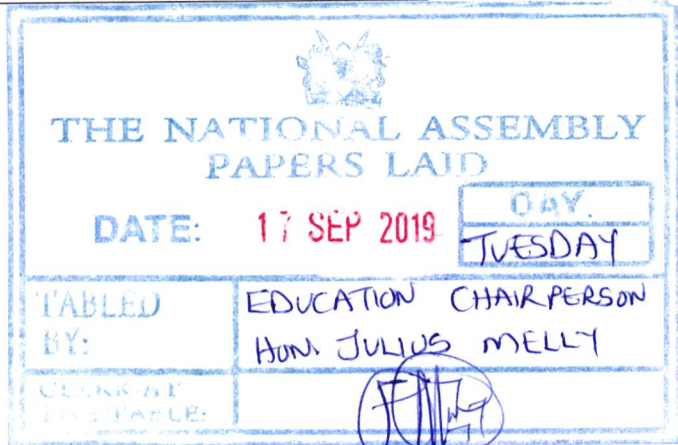 THE NATIONAL ASSEMBLY
PAPERS LAID
DATE: 17 SEP 2019
DAY.
TUESDAY
TABLED BY:
EDUCATION CHAIRPERSON
HON. JULIUS MELLY
CLERK-AT
THE-TABLE: